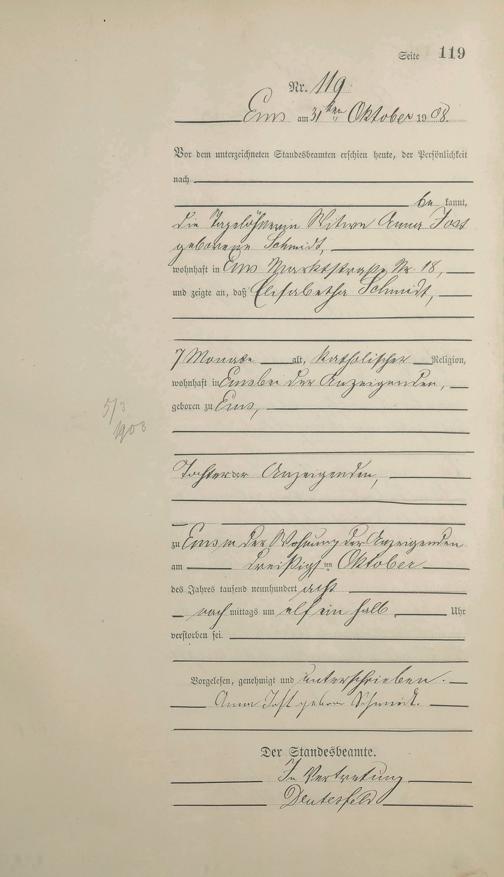 Seite 119
Nr. 119
Ems am 31ten Oktober 1908.
Vor dem unterzeichneten Standesbeamten erschien heute, der Persönlichkeit
nach
be kannt,
die Tagelöhnerin Witwe Anna Jost
geborene Schmidt,
wohnhaft in Ems Marktstraße Nr 18,
und zeigte an, daß Elisabetha Schmidt,
7 Monate alt, katholischer Religion,
wohnhaft in Ems bei der Anzeigenden,
geboren zu Ems,
5/3
1908
Tochter der Anzeigenden,
zu Ems in der Wohnung der Anzeigenden
am dreißigsten Oktober
des Jahres tausend neunhundert acht
nach mittags um elf ein halb Uhr
verstorben sei.
Vorgelesen, genehmigt und unterschrieben.
Anna Jost geborene Schmidt.
Der Standesbeamte.
In Vertretung